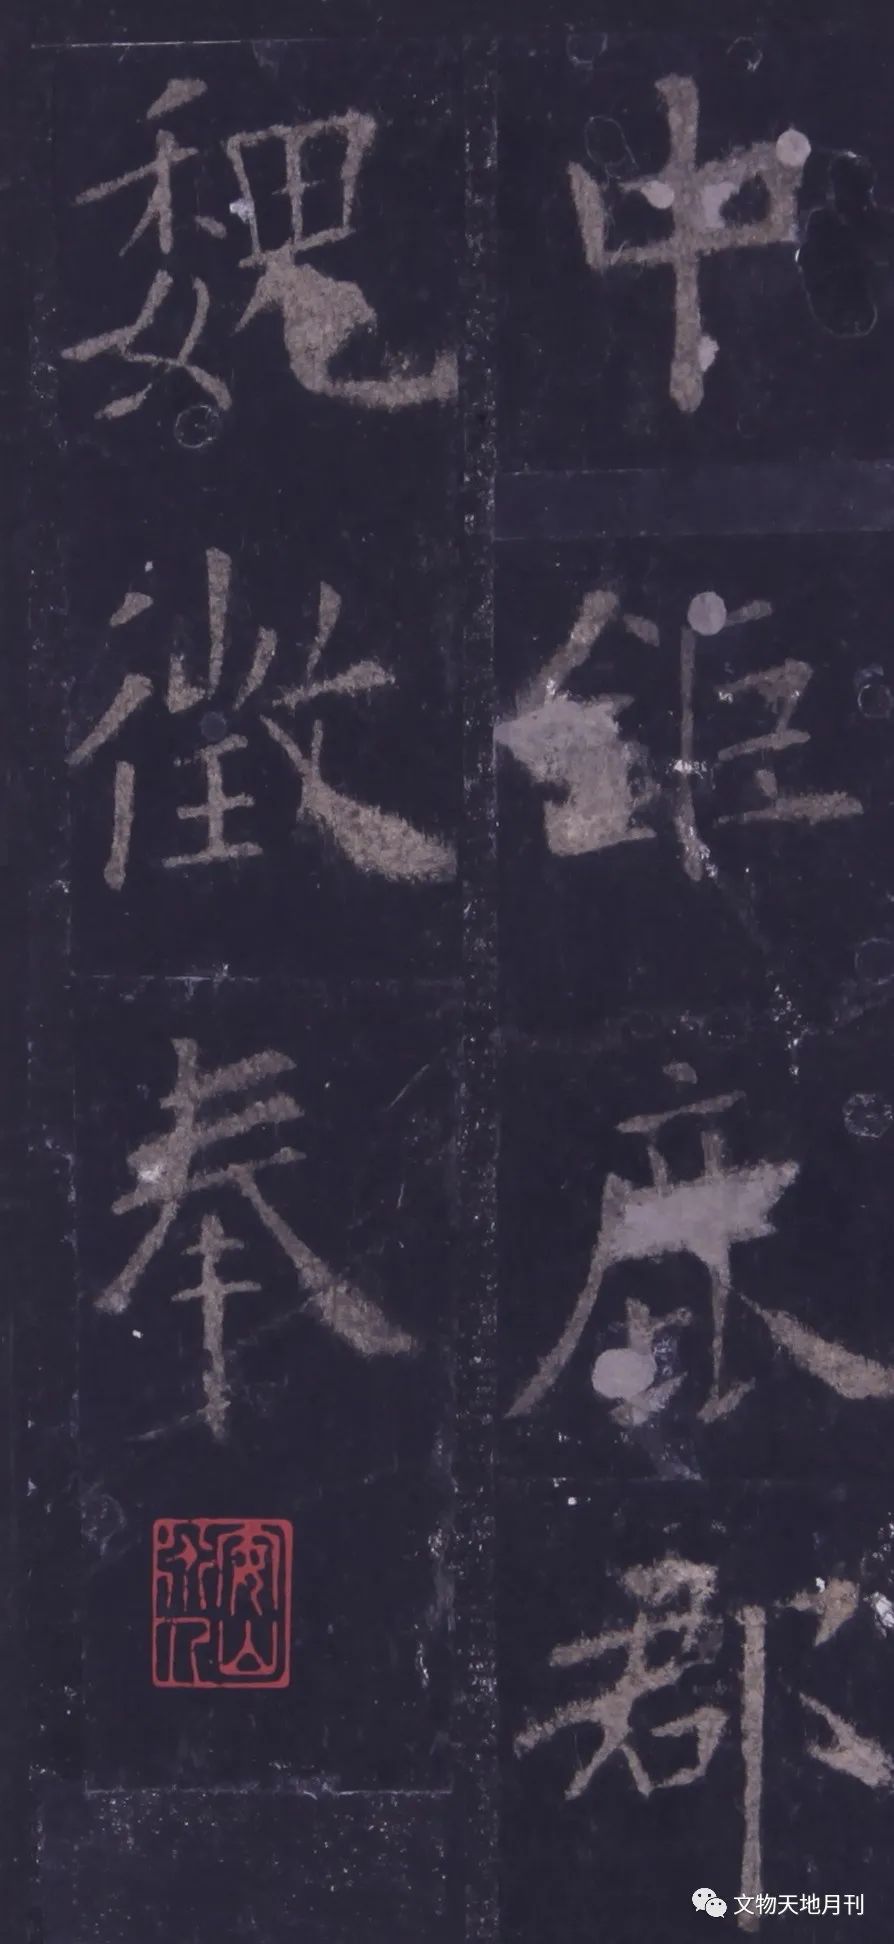 中鉅鹿郡
魏徵奉
文物天地月刊